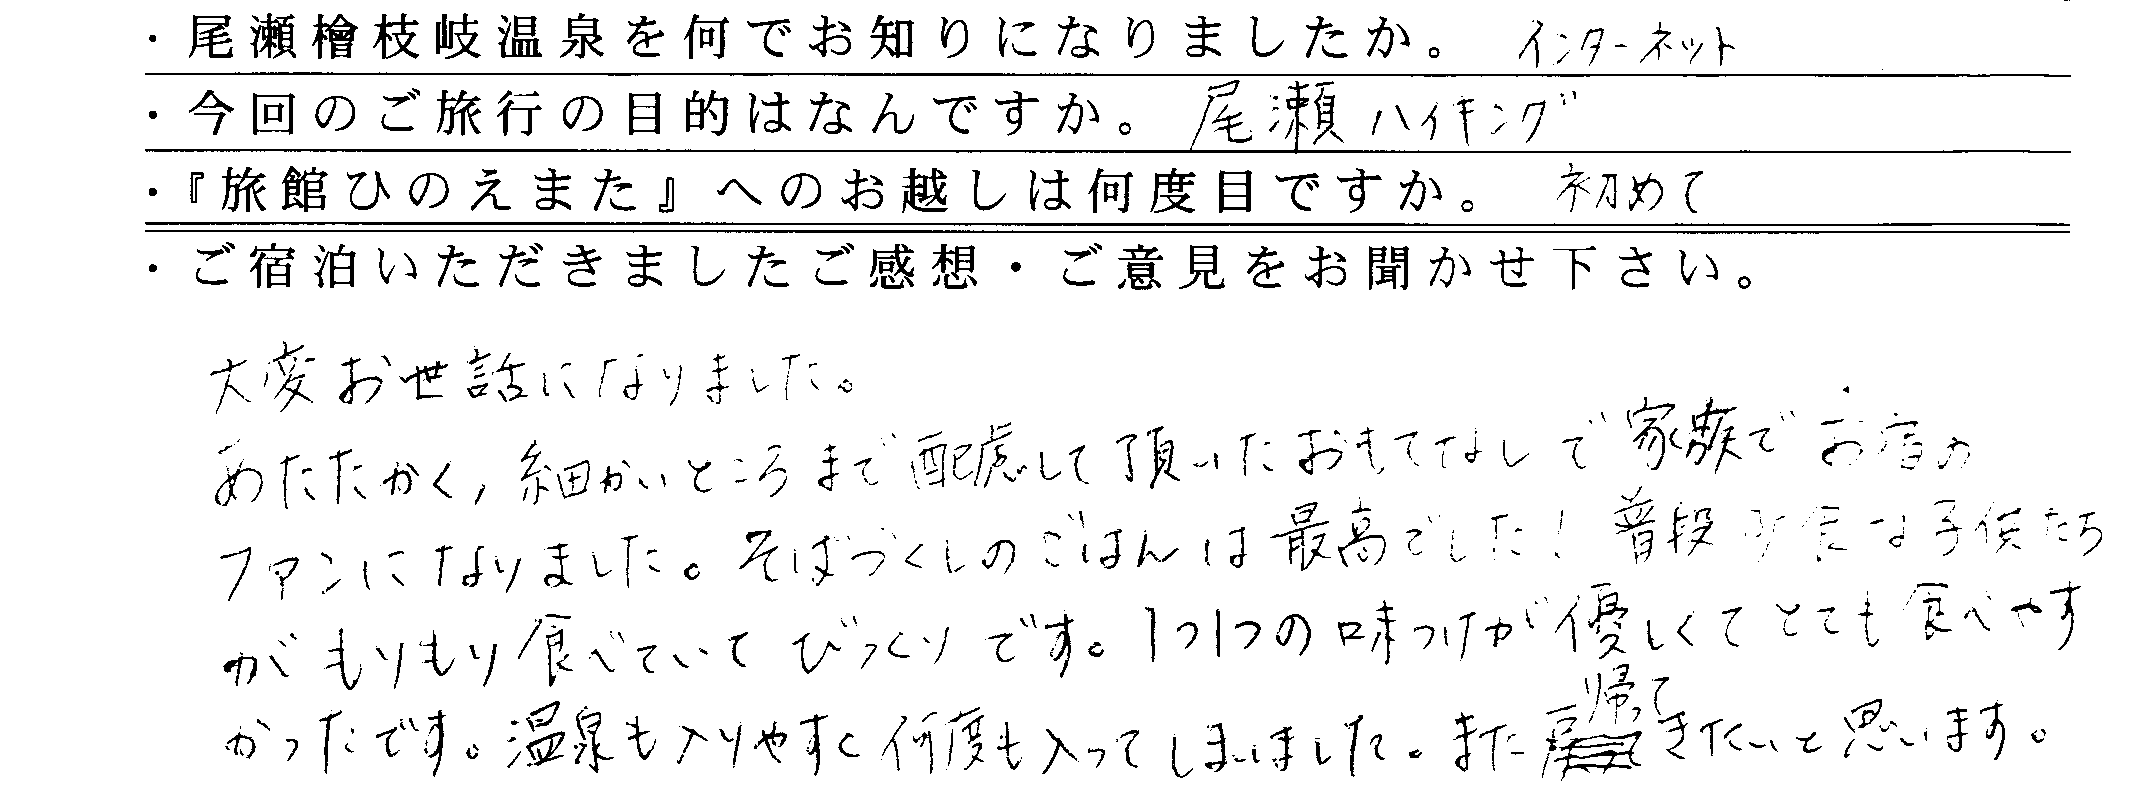 ・尾瀬檜枝岐温泉を何でお知りになりましたか。 インターネット
・今回のご旅行の目的はなんですか。 尾瀬ハイキング
・『旅館ひのえまた』へのお越しは何度目ですか。 初めて
・ご宿泊いただきましたご感想・ご意見をお聞かせ下さい。
大変お世話になりました。
あたたかく,細かいところまで配慮して頂いたおもてなしで家族でお宿の
ファンになりました。そばづくしのごはんは最高でした!普段少食な子供たち
がもりもり食べていてびっくりです。1つ1つの味つけが優しくてとても食べやす
かったです。温泉も入りやすく何度も入ってしまいました。また帰ってきたいと思います。